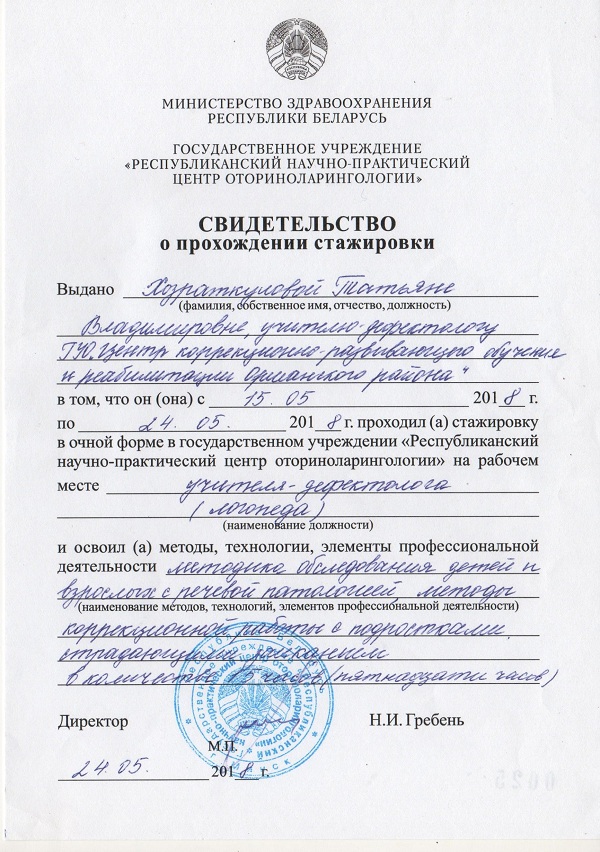 МИНИСТЕРСТВО ЗДРАВООХРАНЕНИЯ
РЕСПУБЛИКИ БЕЛАРУСЬ
ГОСУДАРСТВЕННОЕ УЧРЕЖДЕНИЕ
«РЕСПУБЛИКАНСКИЙ НАУЧНО-ПРАКТИЧЕСКИЙ
ЦЕНТР ОТОРИНОЛАРИНГОЛОГИИ»
СВИДЕТЕЛЬСТВО
о прохождении стажировки
Выдано Хозраткуловой Татьяне
(фамилия, собственное имя, отчество, должность)
Владимировне, учителю-дефектологу
ГУО „Центр коррекционно-развивающего обучения
и реабилитации Оршанского района“
в том, что он (она) с 15.05 2018 г.
по 24.05. 2018 г. проходил (а) стажировку
в очной форме в государственном учреждении «Республиканский
научно-практический центр оториноларингологии» на рабочем
месте учителя-дефектолога
(логопеда)
(наименование должности)
и освоил (а) методы, технологии, элементы профессиональной
деятельности методика обследования детей и
взрослых с речевой патологией, методы
(наименование методов, технологий, элементов профессиональной деятельности)
коррекционной работы с подростками,
страдающими заиканием
в количестве 15 часов (пятнадцати часов)
Директор Н.И. Гребень
М.П.
24.05. 2018 г.